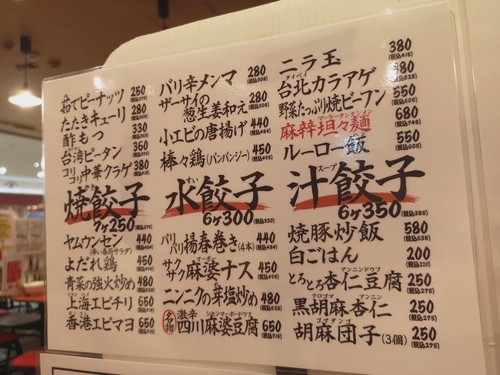 茹でピーナッツ 250
たたきキューリ 280
酢もつ 330
台湾ピータン 360
コリコリ中華クラゲ 380
焼餃子
7ヶ250
ヤムウンセン 440
よだれ鶏 450
青菜の強火炒め 480
上海エビチリ 650
香港エビマヨ 650
パリ辛メンマ 280
ザーサイの
葱生姜和え 280
小エビの唐揚げ 440
棒々鶏(バンバンジー) 450
水餃子
6ヶ300
パリパリ揚春巻き(4本) 440
サクサク麻婆ナス 450
ニンニクの芽塩炒め 480
名物 激辛 四川麻婆豆腐 650
ニラ玉 380
台北カラアゲ 480
野菜たっぷり焼ビーフン 550
麻辣坦々麺 680
ルーロー飯 550
スープ
汁餃子
6ヶ350
焼豚炒飯 580
白ごはん 200
アンニンドウフ
とろとろ杏仁豆腐 250
クロゴマ アンニン
黒胡麻杏仁 250
ゴマダンゴ
胡麻団子(3個) 250